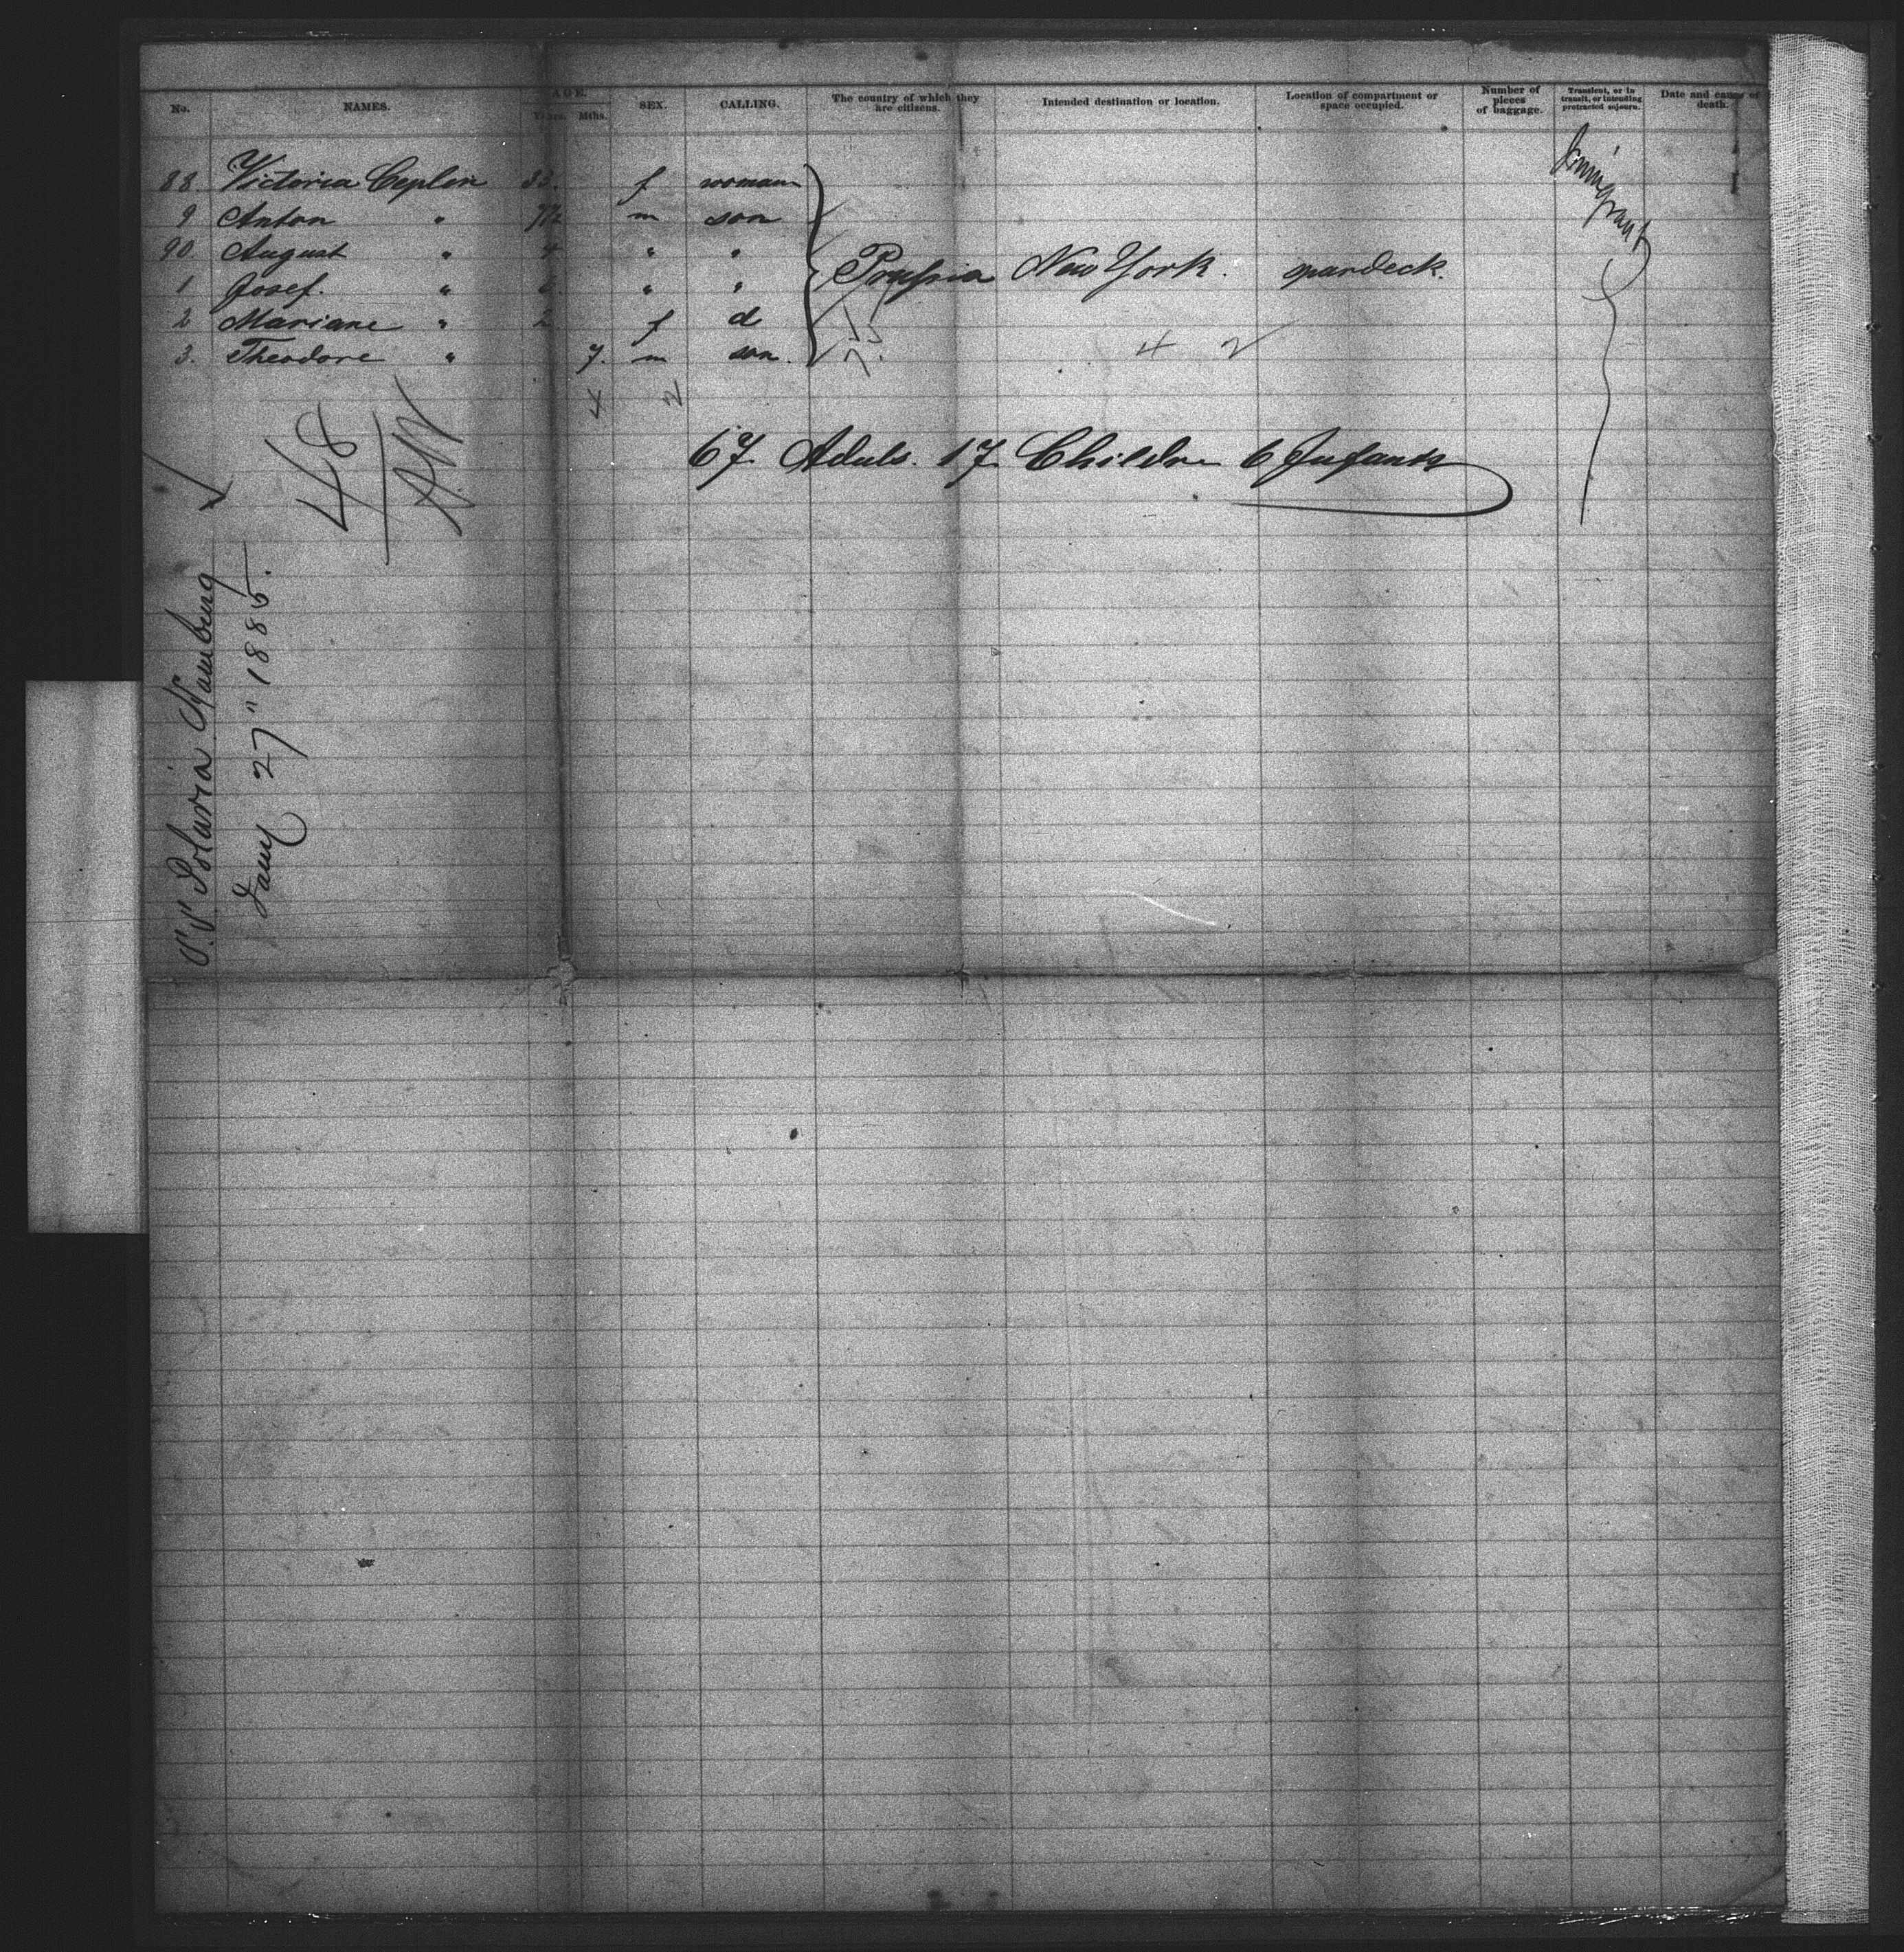 No. NAMES. AGE. Years. Mths. SEX. CALLING. The country of which they are citizens. Intended destination or location. Location of compartment or space occupied. Number of pieces of baggage. Transient, or in transit, or intending protracted sojourn. Date and cause of death.
88. Victoria Ceplin 33. f woman
9 Anton " 7½ m son
90. August " 4 " "
1 Josef. " 6. " "
2 Mariane " 2 f d
3. Theodore " 7. m son.
Prussia New York. spardeck.
Immigrant
4 2
4 2
67. Adults. 17 Children 6 Infants
48
A.W.
S.S. Polaria Hamburg
Jany 27" 1885.